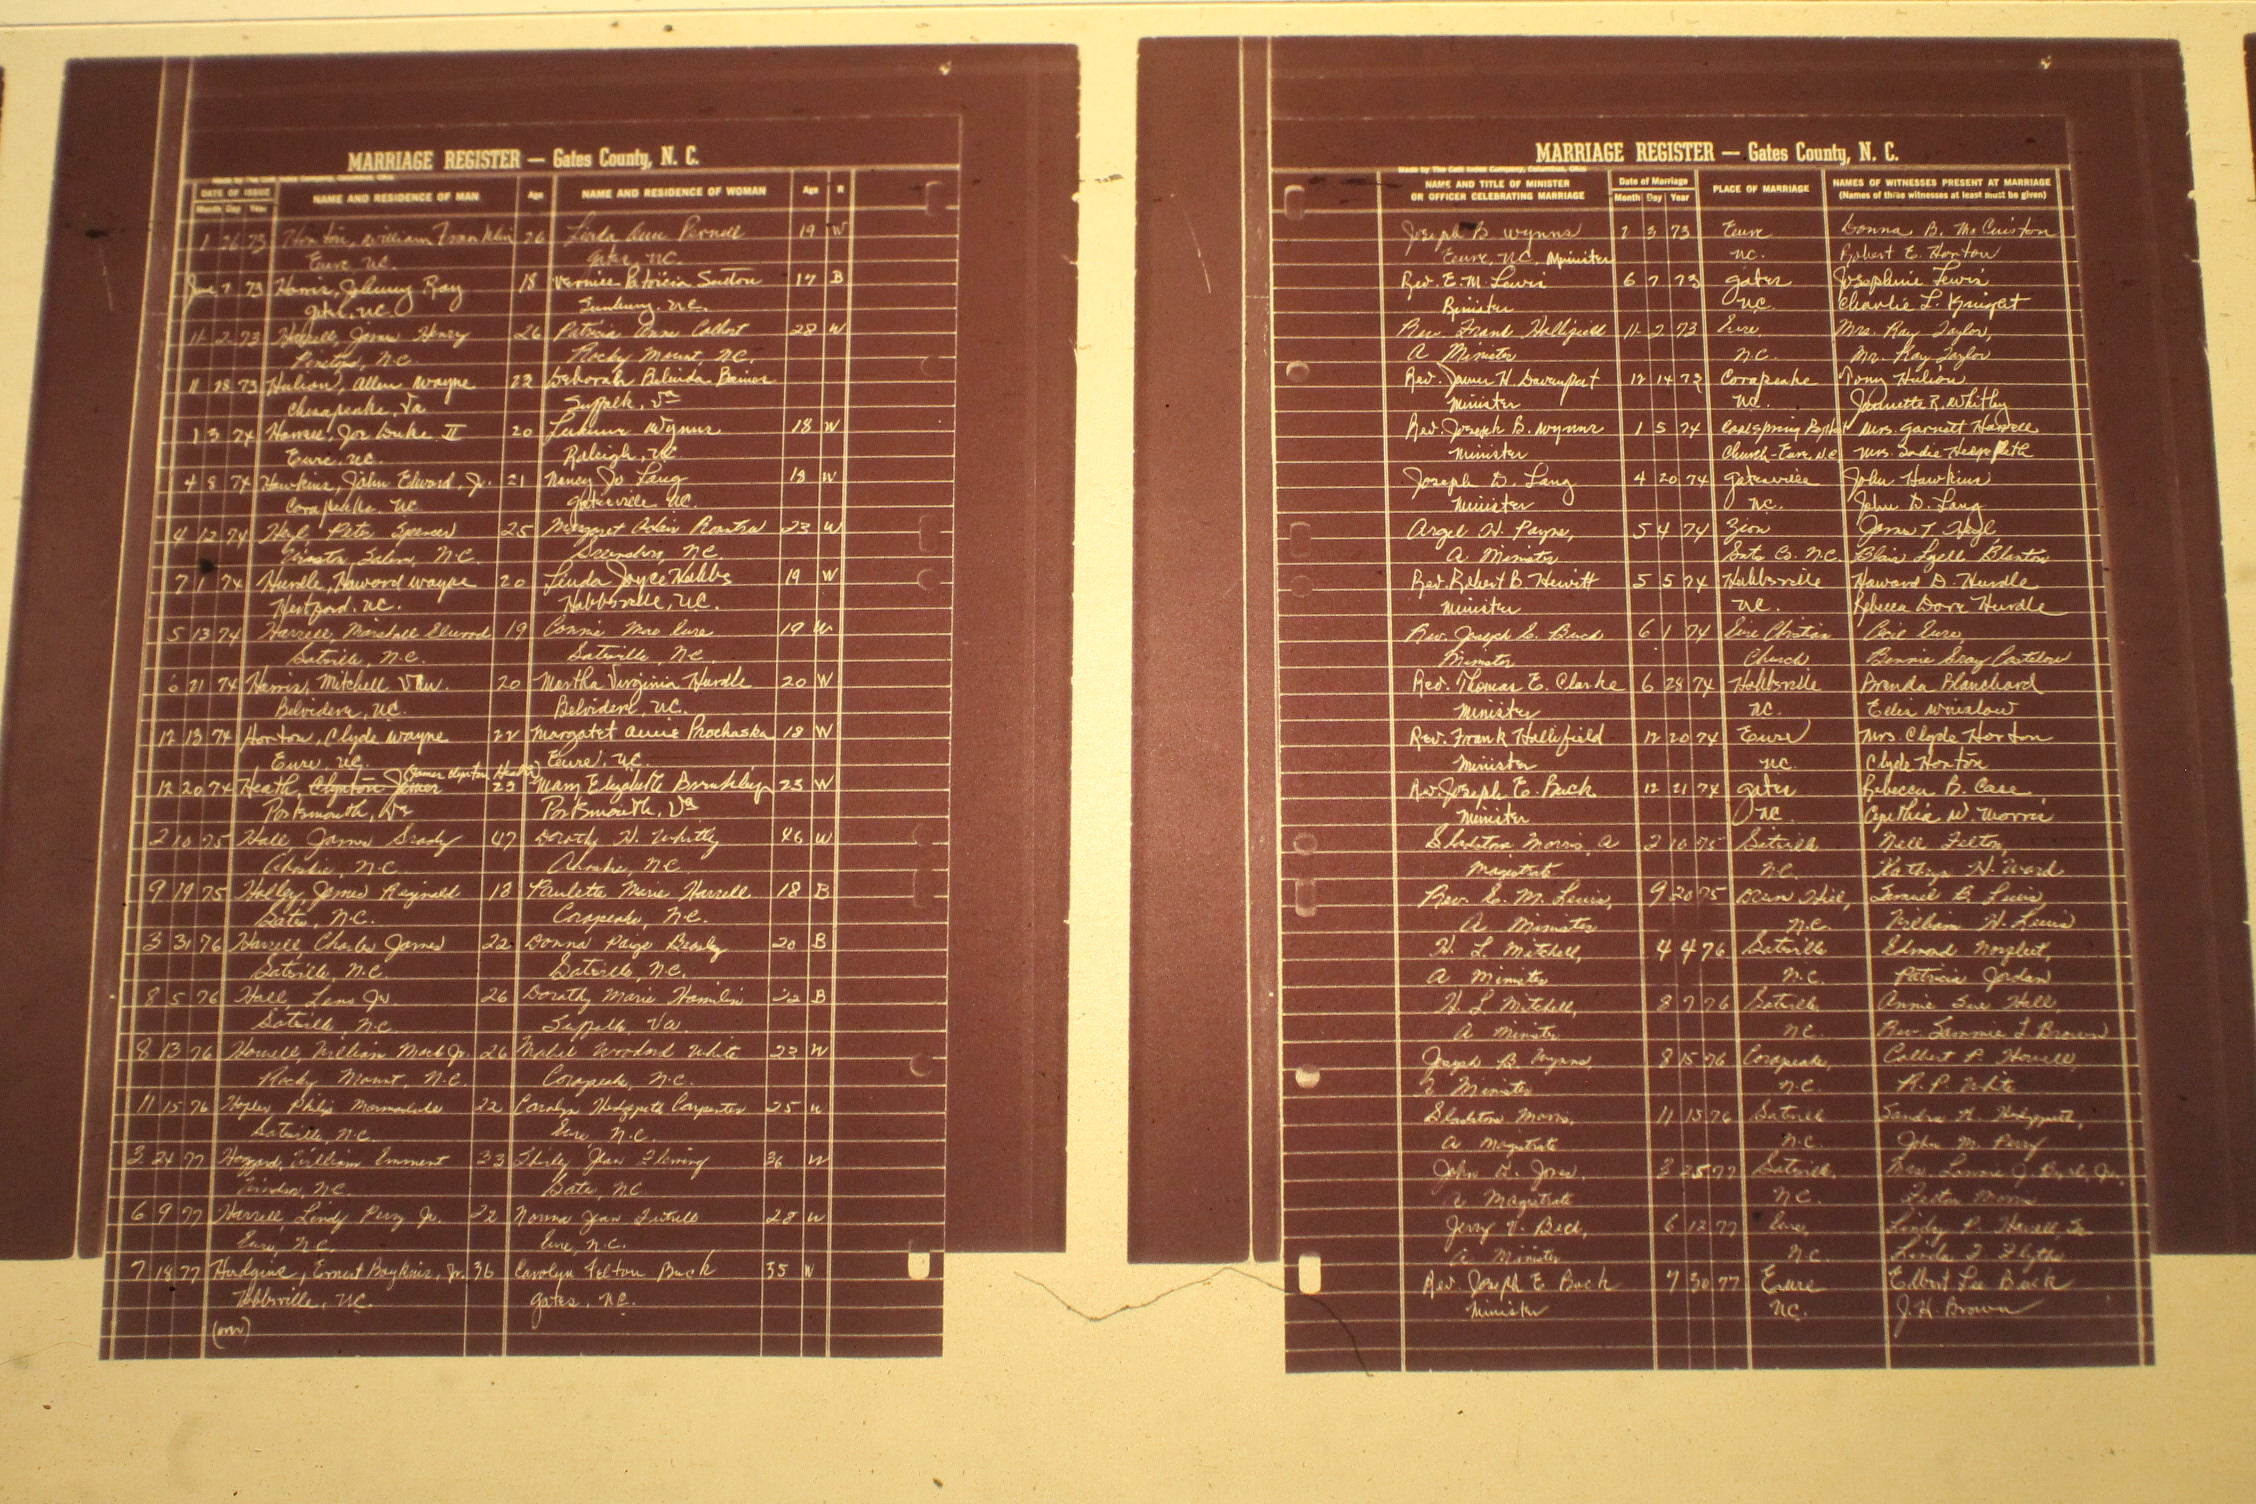 MARRIAGE REGISTER — Gates County, N. C.
Made by The Cott Index Company, Columbus, Ohio
DATE OF ISSUE NAME AND RESIDENCE OF MAN Age NAME AND RESIDENCE OF WOMAN Age R
Month Day Year
1 26 73 Horton, William Franklin 26 Linda Ann 19 W
Eure, NC. Gates, NC.
June 7 73 Harris, Johnny Ray 18 Vernice Patricia 17 B
Gates, NC Sunbury, NC.
11 2 73 James Henry 26 Patricia Anne 28 W
N.C. Rocky Mount, NC.
11 28 73 Allen Wayne 22 Deborah Belinda
Chesapeake, Va Suffolk, Va
1 3 74 Joe Duke II 20 Wynns 18 W
Eure, NC. Raleigh, NC
4 8 74 Hawkins, John Edward, Jr. 21 Nancy Jo Lang 18 W
Corapeake, NC. Gatesville NC.
4 12 74 Peter Spencer 25 Margaret 23 W
Winston Salem, N.C. NC
7 1 74 Hurdle, Howard Wayne 20 Linda Joyce Hobbs 19 W
Hertford, NC. Hobbsville, NC.
5 13 74 Harrell, Marshall Elwood 19 Connie Mae Eure 19 W
Gatesville, N.C. Gatesville, N.C.
6 21 74 Harris, Mitchell Van 20 Martha Virginia Hurdle 20 W
Belvidere, NC. Belvidere, NC.
12 13 74 Horton, Clyde Wayne 22 Margaret Annie Prochaska 18 W
Eure, NC. Eure, NC.
(James Clynton Heath)
12 20 74 Heath, Clynton James 23 Mary Elizabeth Brinkley 23 W
Portsmouth, Va Portsmouth, Va
2 10 75 Hall James Grady 47 Dorothy H. Whitley 46 W
Ahoskie, N.C. Ahoskie, NC
9 19 75 Holley, James Reginald 18 Paulette Marie Harrell 18 B
Gates, N.C. Corapeake, N.C.
3 31 76 Harrell, Charles James 22 Donna Paige 20 B
Gatesville, N.C. Gatesville, N.C.
8 5 76 Hall, Jr. 26 Dorothy Marie Hamilin 22 B
Gatesville, N.C. Suffolk, Va.
8 13 76 Howell, William Mack Jr. 26 Mabel Woodard White 23 W
Rocky Mount, N.C. Corapeake, N.C.
11 15 76 Philip Marmaduke 22 Carolyn Hedgepeth Carpenter 25 W
Gatesville, N.C. Eure, N.C.
3 24 77 Hoggard, William Emment 33 Shirley Jean Fleming 36 W
Windsor, N.C. Gates, N.C.
6 9 77 Harrell, Lindy Jr. 22 Norma Jean 28 W
Eure, N.C. Eure, N.C.
7 18 77 Hudgins, Ernest Boykins, Jr. 36 Carolyn Felton Buck 35 W
Hobbsville, NC. Gates, NC.
(over)
MARRIAGE REGISTER — Gates County, N. C.
Made by The Cott Index Company, Columbus, Ohio
NAME AND TITLE OF MINISTER OR OFFICER CELEBRATING MARRIAGE Date of Marriage Month Day Year PLACE OF MARRIAGE NAMES OF WITNESSES PRESENT AT MARRIAGE
(Names of three witnesses at least must be given)
Joseph B. Wynns 2 3 73 Eure Donna B. McCuiston
Eure, NC, Minister NC. Robert E. Horton
Rev. E. M. Lewis 6 7 73 Gates Josephine Lewis
Minister NC. Charlie L. Knight
Rev. Frank Hollifield 11 2 73 Eure, Mrs. Ray Taylor,
A Minister N.C. Mr. Ray Taylor
Rev. James H. Davenport 12 14 73 Corapeake Tony
Minister NC. Jeanette R. Whitley
Rev. Joseph B. Wynns 1 5 74 Coolspring Baptist Mrs. Garnett Harrell
Minister Church-Eure, NC Mrs. Sadie Hedgepeth
Joseph D. Lang 4 20 74 Gatesville John Hawkins
Minister NC. John D. Lang
Argel H. Payne, 5 4 74 Zion James T.
A Minister Gates Co. N.C. Blair Lyell Blanton
Rev. Robert B. Hewitt 5 5 74 Hobbsville Howard D. Hurdle
Minister NC. Rebecca Dora Hurdle
Rev. Joseph E. Buck 6 1 74 Eure Christian Ocie Eure,
Minister Church Bennie Gray Costelow
Rev. Thomas E. Clarke 6 28 74 Hobbsville Brenda Blanchard
Minister NC. Winslow
Rev. Frank Hollifield 12 20 74 Eure Mrs. Clyde Horton
Minister NC. Clyde Horton
Rev. Joseph E. Buck 12 21 74 Gates Rebecca B. Case
Minister NC Cynthia W. Morris
Gladston Morris, A 2 10 75 Gatesville Nell Felton,
Magistrate N.C. Kathryn H. Ward
Rev. E. M. Lewis, 9 20 75 Hill, Samuel B. Lewis
A Minister N.C. William H. Lewis
H. L. Mitchell, 4 4 76 Gatesville Edmond Norfleet,
A Minister N.C. Patricia Jordan
H. L. Mitchell, 8 7 76 Gatesville Annie Sue Hall,
A Minister N.C. Rev. Sammie L. Brown
Joseph B. Wynns, 8 15 76 Corapeake, Colbert P. Howell,
A Minister N.C. R. P. White
Gladston Morris, 11 15 76 Gatesville Sandra H. Hedgepeth,
A Magistrate N.C. John M. Perry
John E. Jones, 3 25 77 Gatesville,
A Magistrate N.C. Felton Morris
Jerry V. Beck, 6 12 77 Eure, Lindy P. Harrell, Sr.
A Minister N.C. Linda F. Flythe
Rev. Joseph E Buck 7 30 77 Eure Elbert Lee Buck
Minister NC. J. H. Brown